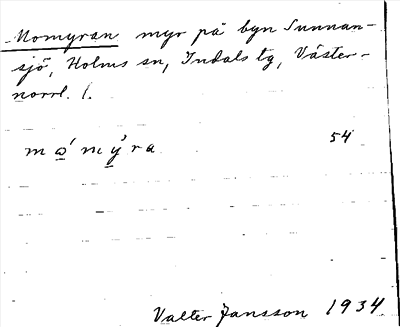 Momyran myr på byn Sunnan-
sjö, Holms sn, Indals tg, Väster-
norrl. l.
mǝ̲́mỳ̲ra 54
Valter Jansson 1934